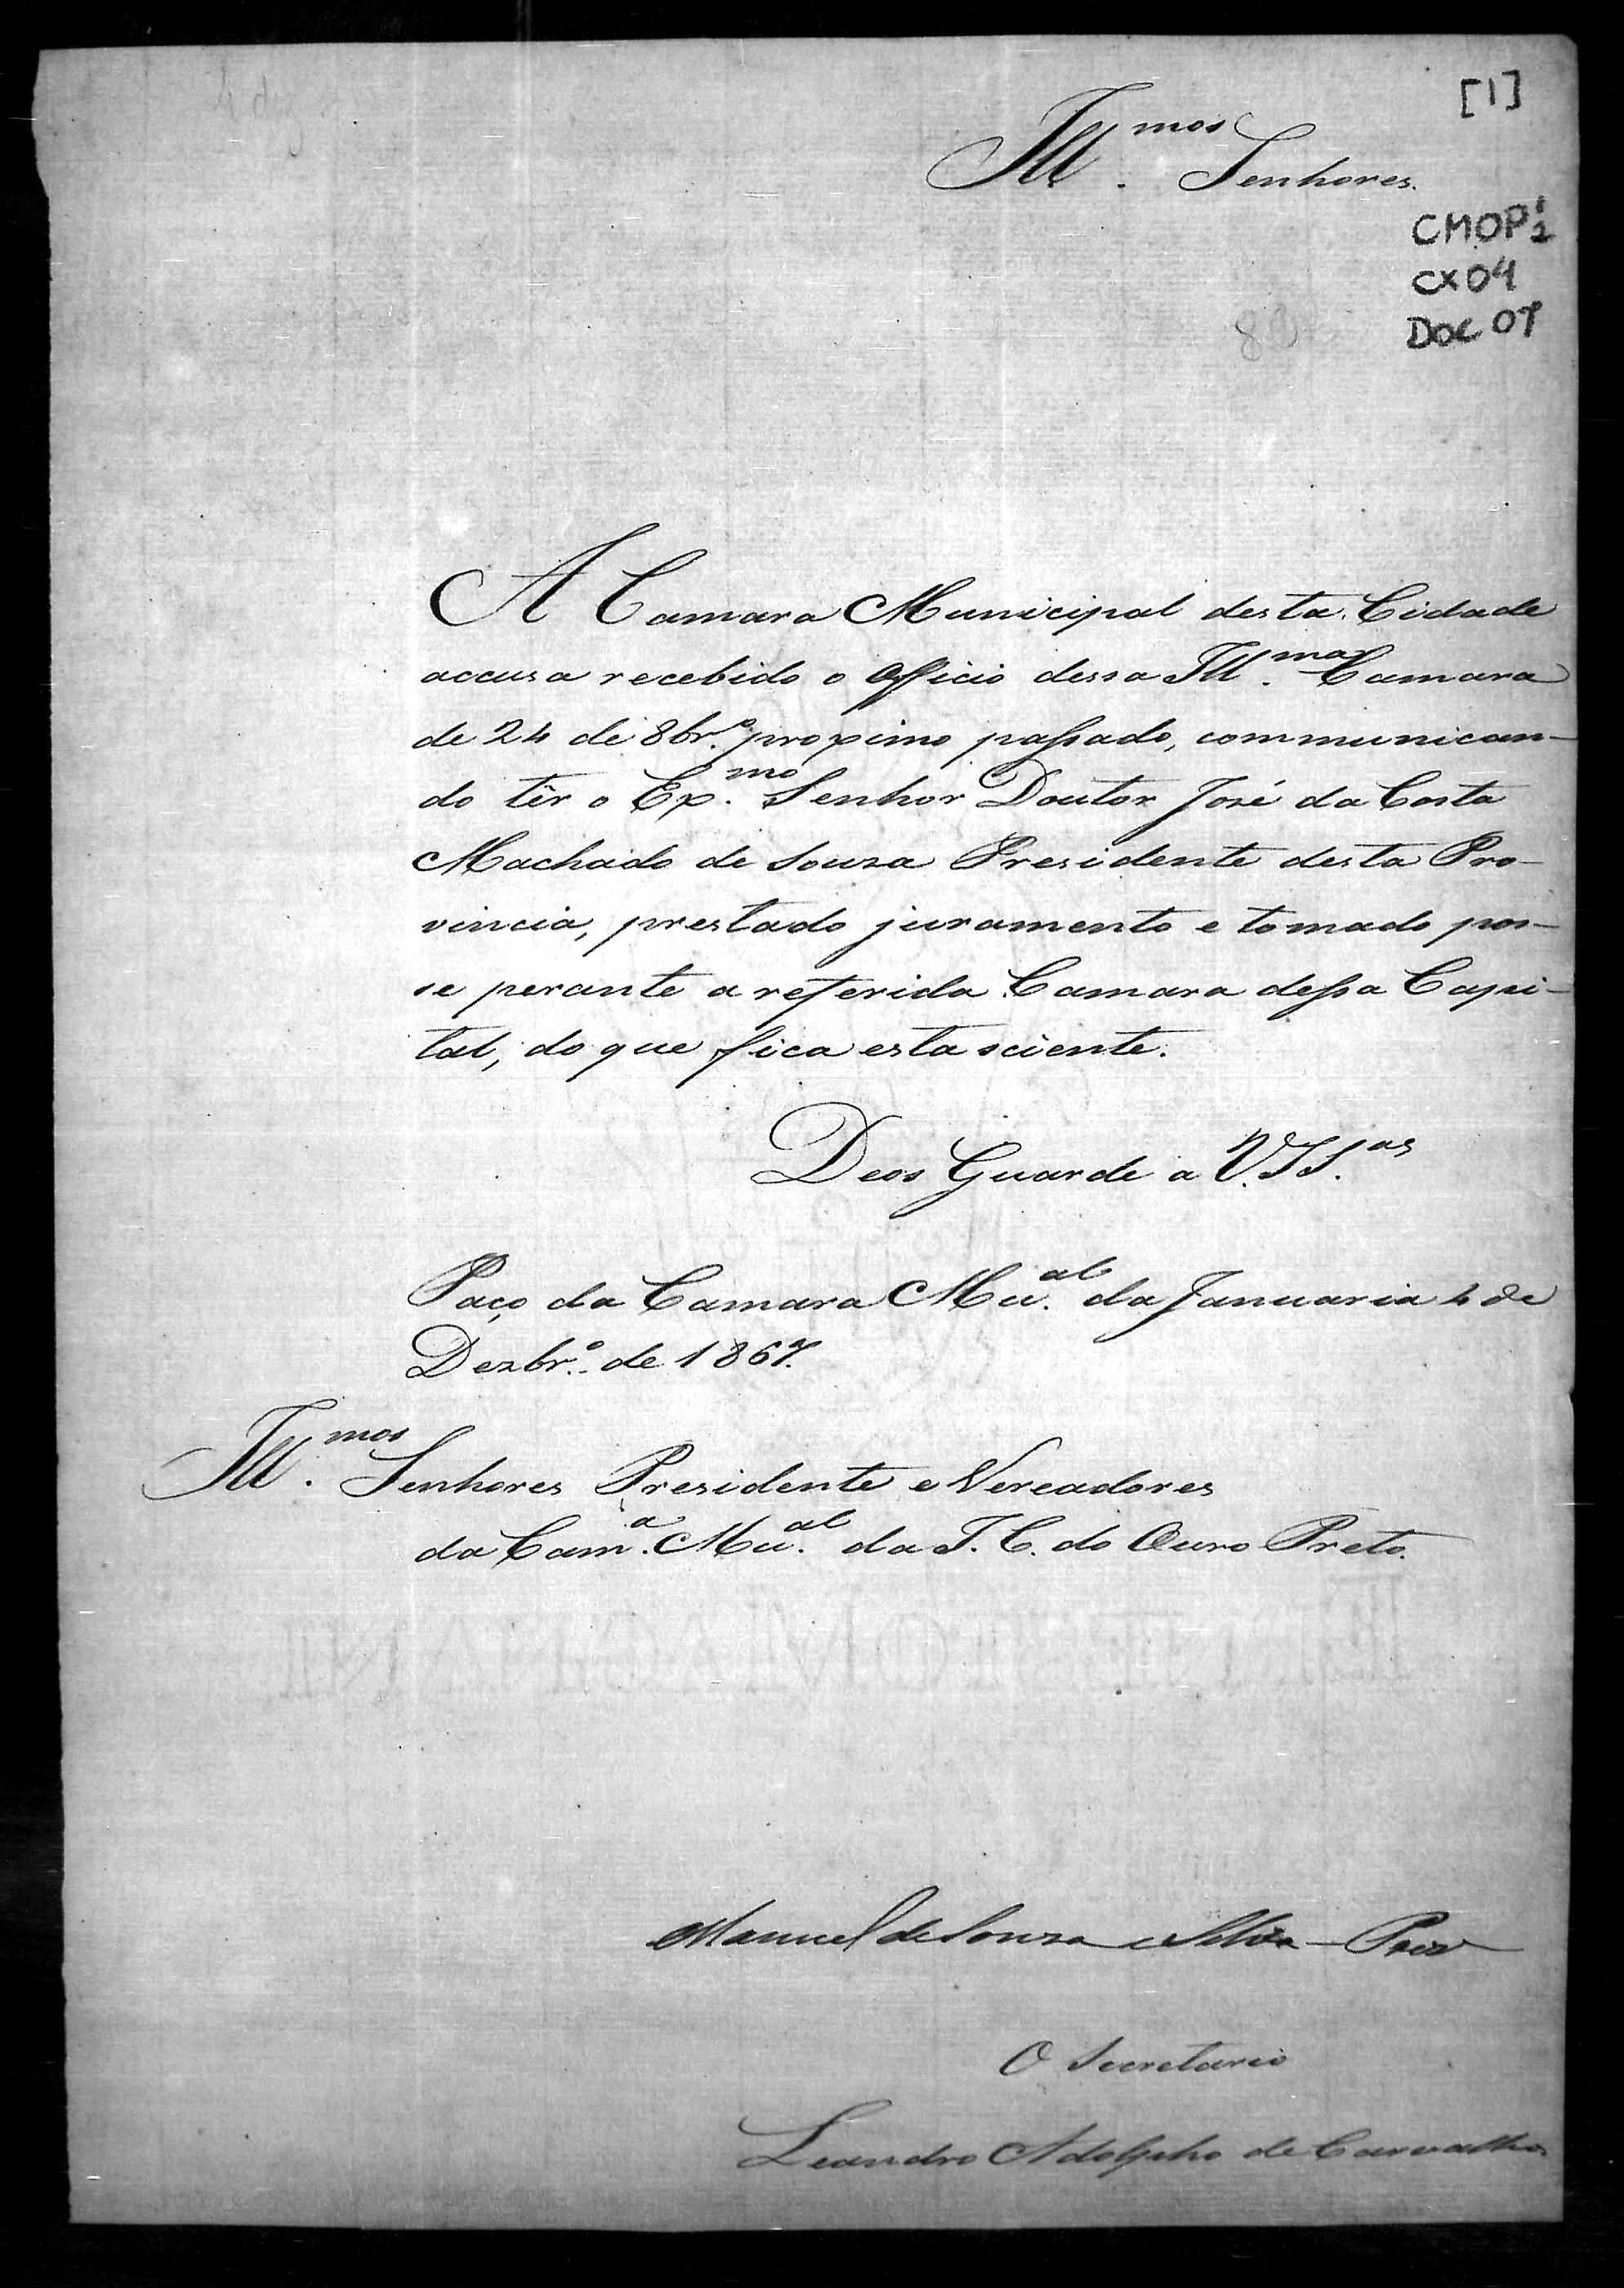 [1]
Ill.mos Senhores.
CMOP 1/2
CX04
DOC 07
A Camara Municipal desta Cidade
accusa recebido o Officio dessa Ill.ma Camara
de 24 de 8br.o proximo passado, communican-
do têr o Ex.mo Senhor Doutor José da Costa
Machado de Souza Presidente desta Pro-
vincia, prestado juramento e tomado pos-
se perante a referida Camara dessa Capi-
tal, do que fica esta sciente.
Deos Guarde a V. SS.as
Paço da Camara Mu.al da Januaria 4 de
Dezbr.o de 1867.
Ill.mos Senhores Presidente e Vereadores
da Cam.a Mu.al da I. C. do Ouro Preto.
Manuel de Souza e Silva
O Secretario
Leandro Adolpho de Carvalho